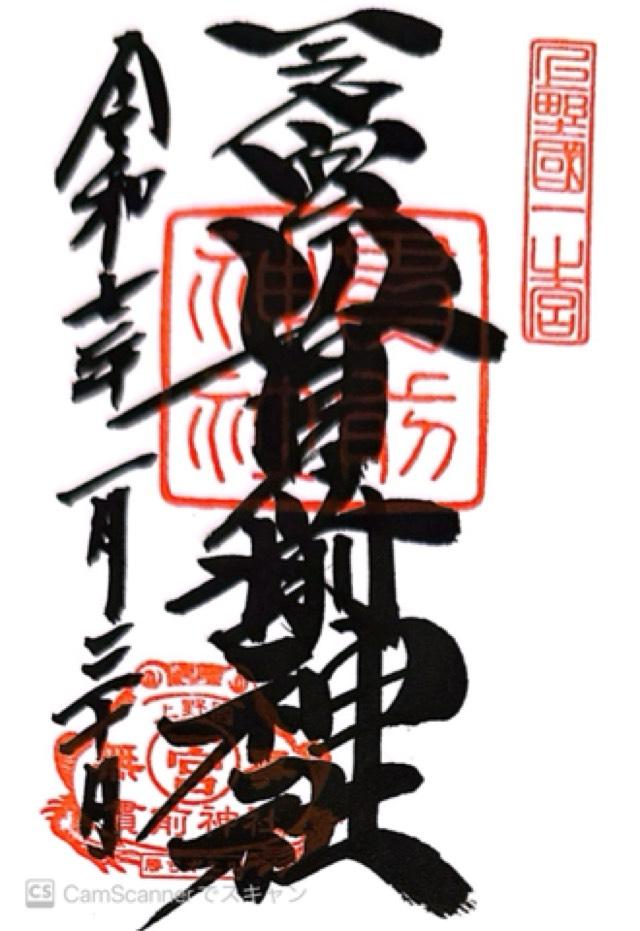 上野國一之宮
一之宮貫前神社
貫前
神社
令和七年一月二十日
上野國
宮
貫前神社
CS CamScannerでスキャン